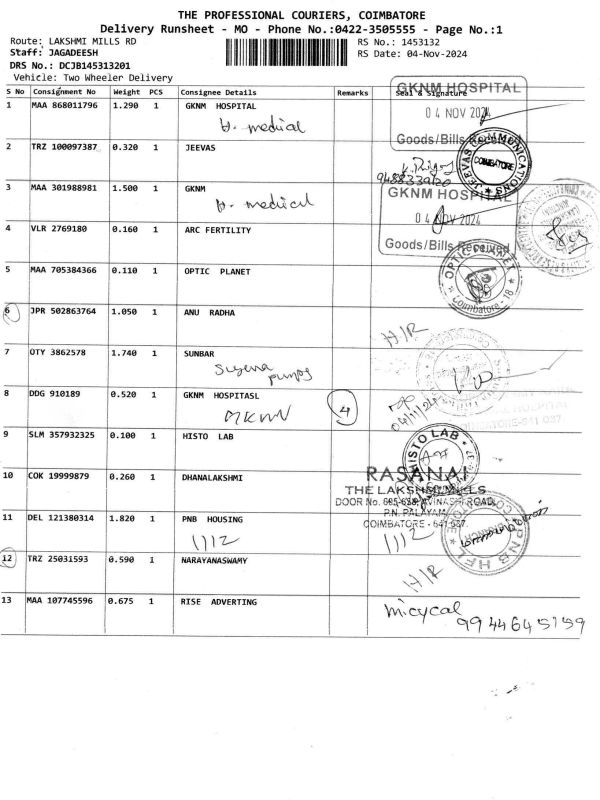 THE PROFESSIONAL COURIERS, COIMBATORE
Delivery Runsheet - MO - Phone No.:0422-3505555 - Page No.:1
Route: LAKSHMI MILLS RD
RS No.: 1453132
Staff: JAGADEESH
RS Date: 04-Nov-2024
DRS No.: DCJB145313201
Vehicle: Two Wheeler Delivery
S No Consignment No Weight PCS Consignee Details Remarks Seal & Signature
1 MAA 868011796 1.290 1 GKNM HOSPITAL
medical
GKNM HOSPITAL
04 NOV 2024
Goods/Bills Received
2 TRZ 100097387 0.320 1 JEEVAS
JEEVAS COMMUNICATIONS
COIMBATORE
9488339120
3 MAA 301988981 1.500 1 GKNM
medical
GKNM HOSPITAL
04 NOV 2024
Goods/Bills Received
4 VLR 2769180 0.160 1 ARC FERTILITY
5 MAA 705384366 0.110 1 OPTIC PLANET
OPTIC PLANET
Coimbatore - 18
6 JPR 502863764 1.050 1 ANU RADHA
H/R
7 OTY 3862578 1.740 1 SUNBAR
pumps
8 DDG 910189 0.520 1 GKNM HOSPITASL
4
04/11/24
HOSPITAL
COIMBATORE-641 037.
9 SLM 357932325 0.100 1 HISTO LAB
HISTO LAB
10 COK 19999879 0.260 1 DHANALAKSHMI
RASANAI
THE LAKSHMI MILLS
DOOR No. 685-686, AVINASHI ROAD,
P.N. PALAYAM,
COIMBATORE - 641 037.
11 DEL 121380314 1.820 1 PNB HOUSING
1112
1112
PNB HFL
12 TRZ 25031593 0.590 1 NARAYANASWAMY
H/R
13 MAA 107745596 0.675 1 RISE ADVERTING
micycal
9944645159